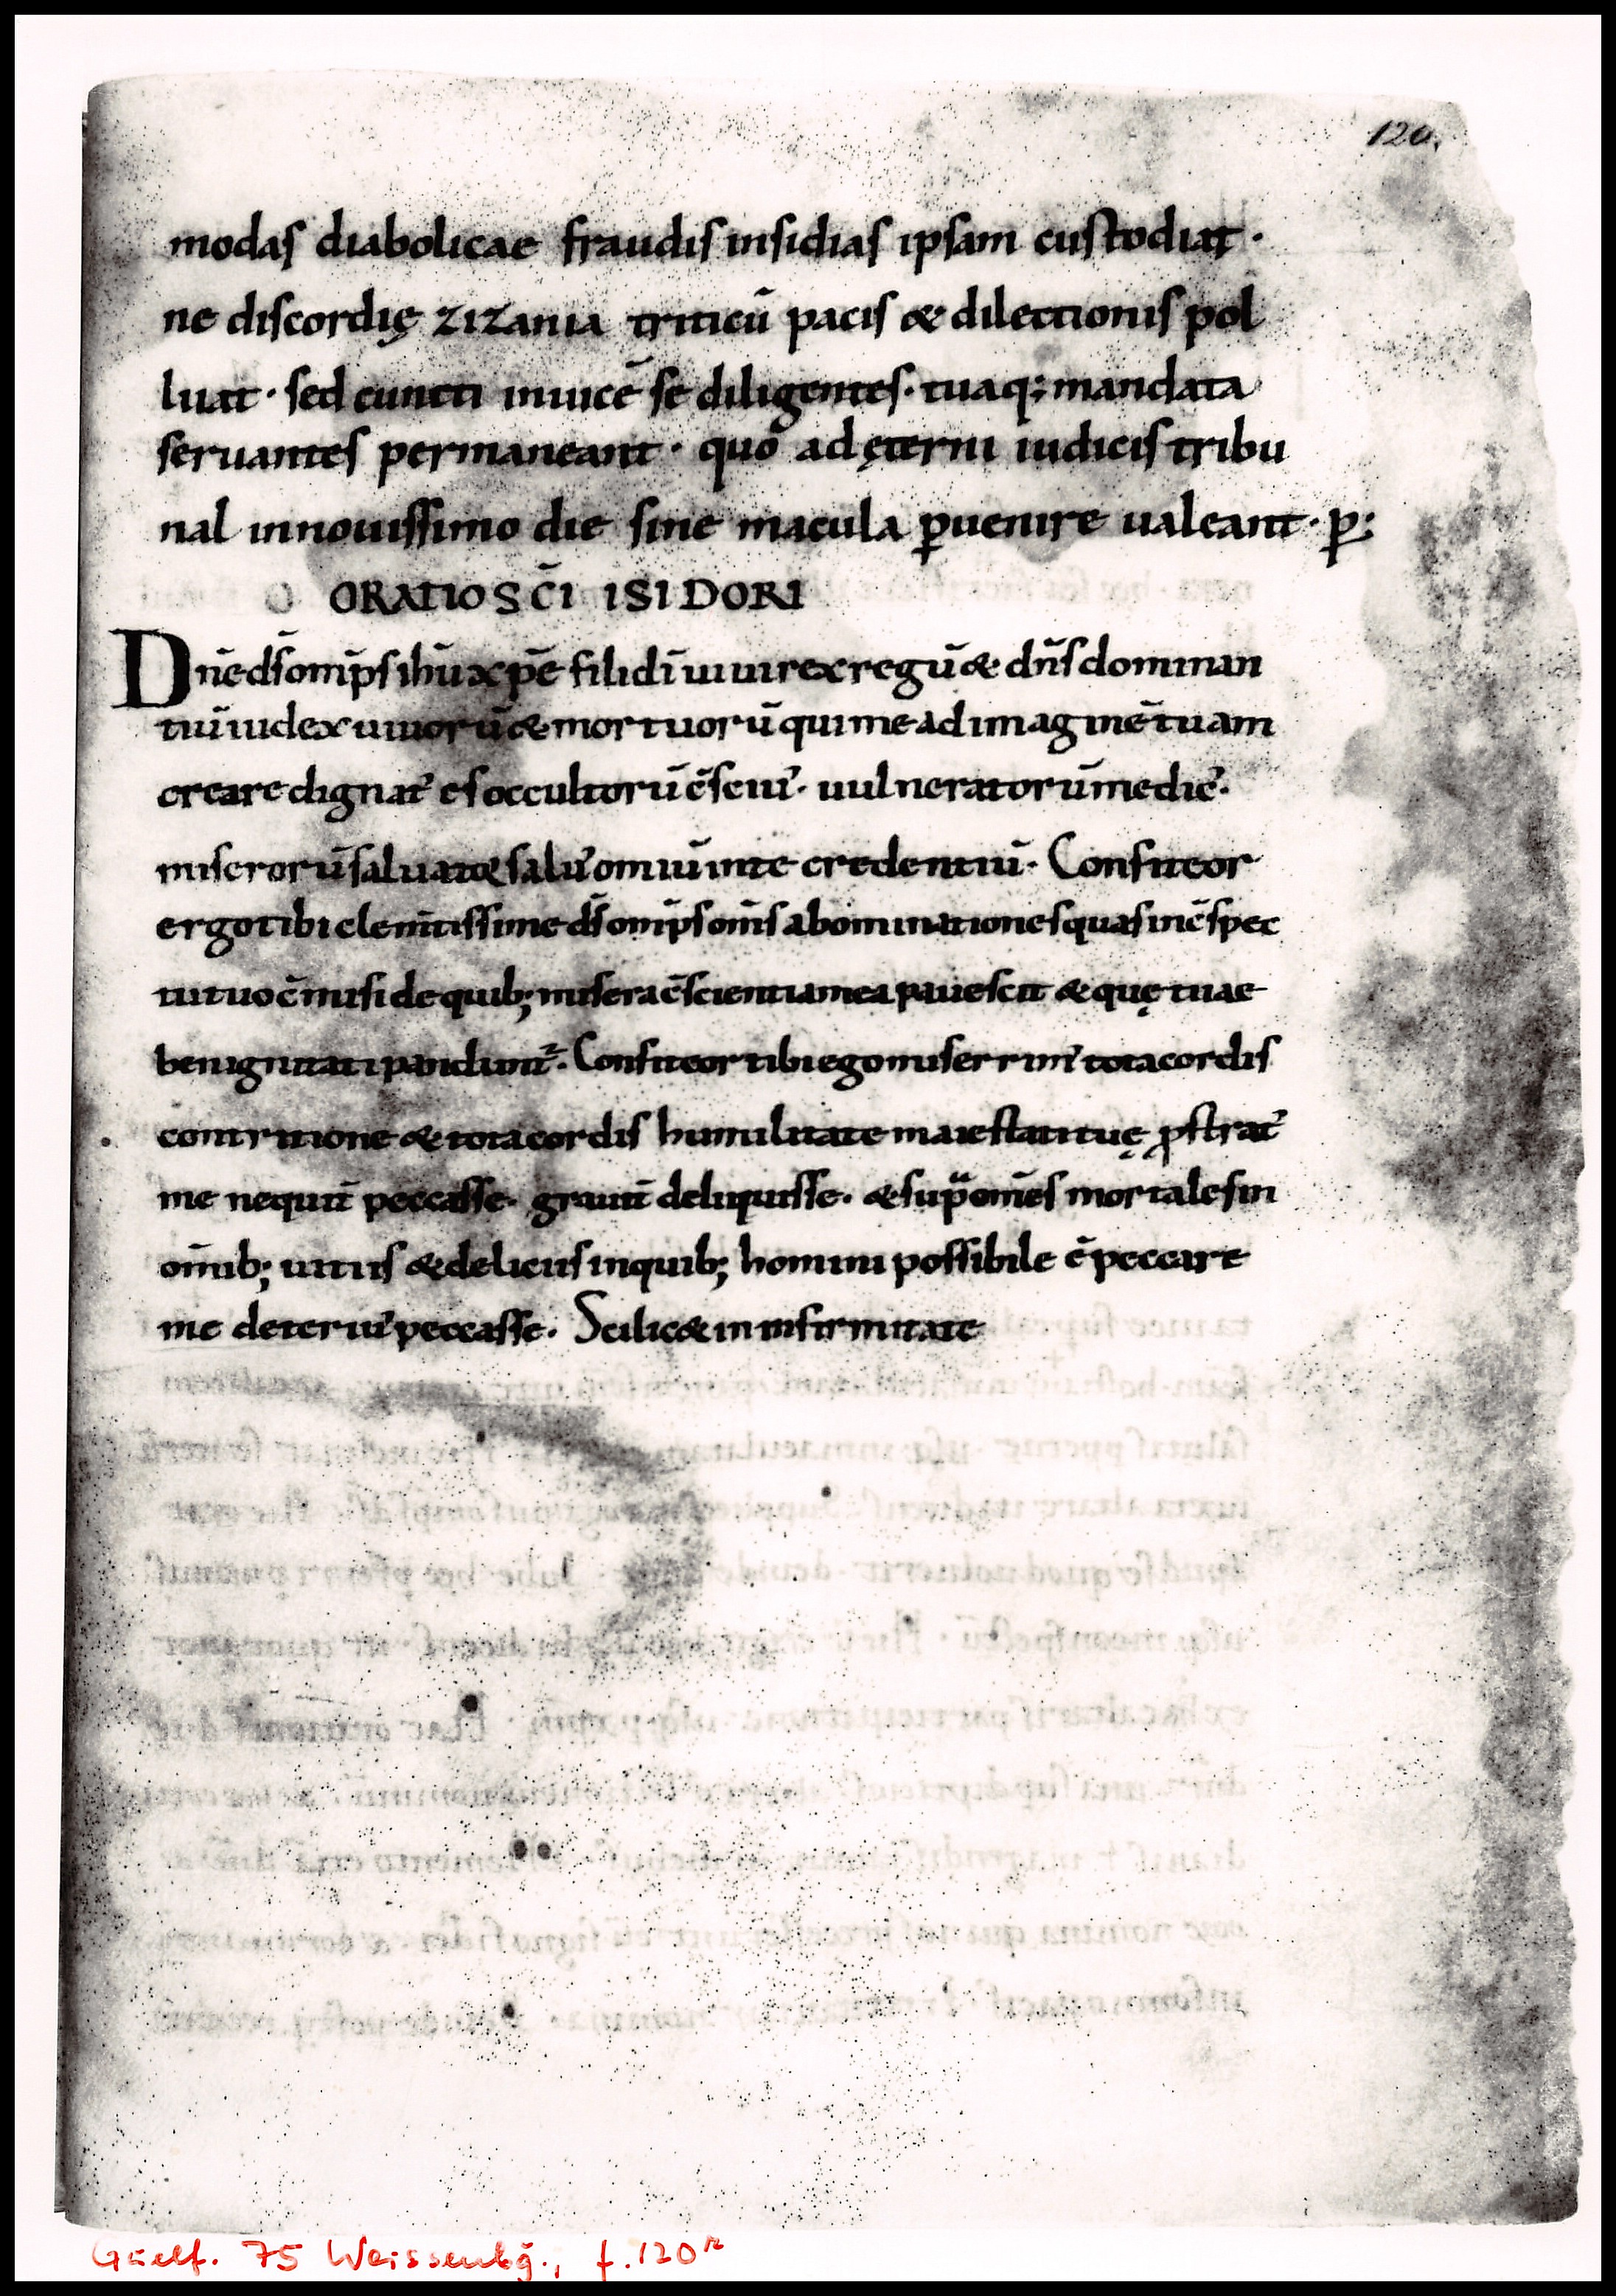 120.
modas diabolicae fraudis insidias ipsam custodiat ·
ne discordię zizania triticū pacis & dilectionis pol
luat · sed cuncti inuicē se diligentes · tuaq; mandata
seruantes permaneant · quo ad ęterni iudicis tribu
nal in nouissimo die sine macula ꝑuenire ualeant · ꝑ:
ORATIO SC̄I ISIDORI
Dn̄e ds̄ omīps ihū xpē fili dī uiui rex regū & dn̄s dominan
tiū iudex uiuorū & mortuorū qui me ad imaginē tuam
creare dignat᾽ es occultorū c̄sciu᾽ · uulneratorū medic᾽ ·
miserorū saluat& salu᾽ omiū in te credentiū · Confiteor
ergo tibi clemītissime ds̄ omīps om̄s abominationes quas in c̄spec
tu tuo c̄misi de quib; misera c̄scientia mea pauescit & quę tuae
benignitati pandunt᾽ · Confiteor tibi ego miserrim᾽ tota cordis
contritione & tota cordis humilitate maiestati tuę ꝓstrat᾽
me nequit̄ peccasse · grauit̄ deliquisse · & sup̄ om̄es mortales in
om̄ib; uitiis & deliciis in quib; homini possibile ē peccare
me deteriu᾽ peccasse · Scilic& in infirmitate
Guelf. 75 Weissenbg., f. 120r